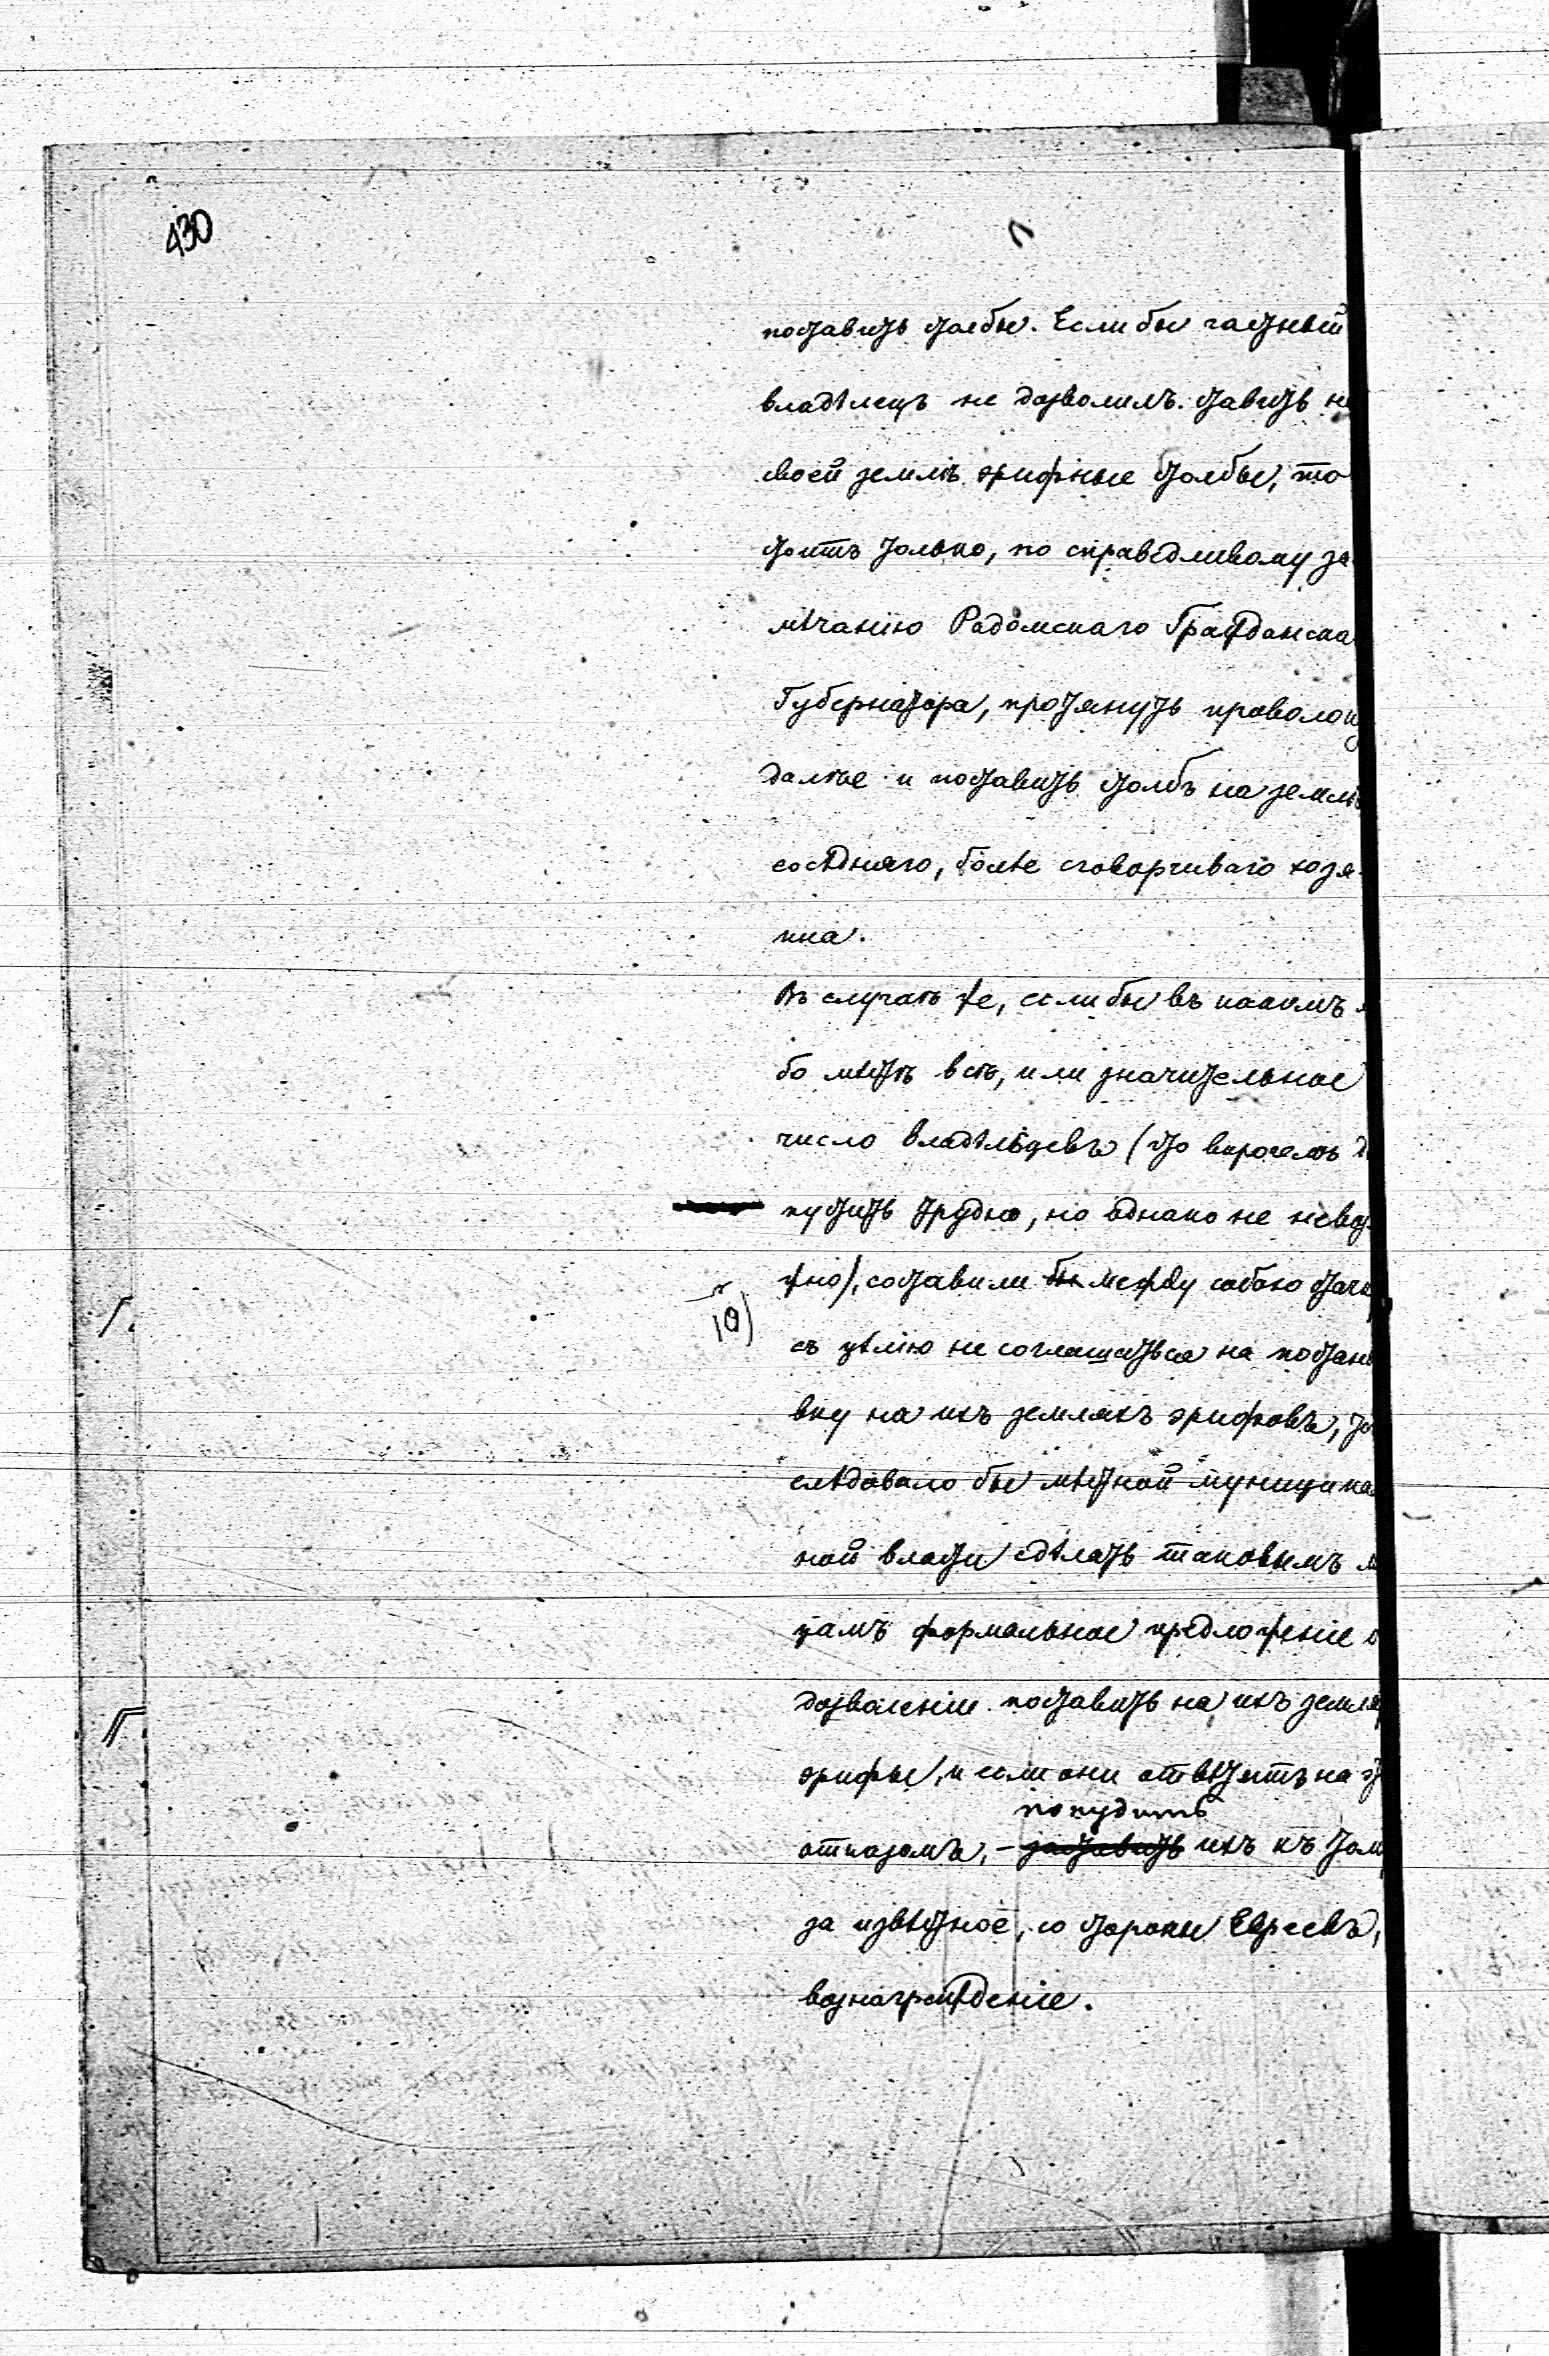 430
поставить столбы. Если бы частный
владѣлецъ не дозволилъ ставить на
своей землѣ эрифные столбы, то
стоитъ только, по справедливому за-
мѣчанію Радомскаго Гражданска
Губернатора, протянуть проволоку
далѣе и поставить столбъ на землѣ
сосѣдняго, болѣе сговорчиваго хозя-
ина.
Въ случаѣ же, если бы въ какомъ ли
бо мѣстѣ всѣ, или значительное
число владѣльцевъ (что впрочемъ до
пустить трудно, но однако не невоз
жно), составили бы между собою стачк
10)
съ цѣлію не соглашаться на постано
вку на ихъ земляхъ эрифовъ, то
слѣдовало бы мѣстной муниципал
ной власти сдѣлать таковымъ ли
цамъ формальное предложеніе о
дозволеніи поставить на ихъ земля
эрифы, и если они отвѣтятъ на э
понудить
отказомъ, – заставить ихъ къ тому
за извѣстное, со стороны Евреевъ,
вознагражденіе.